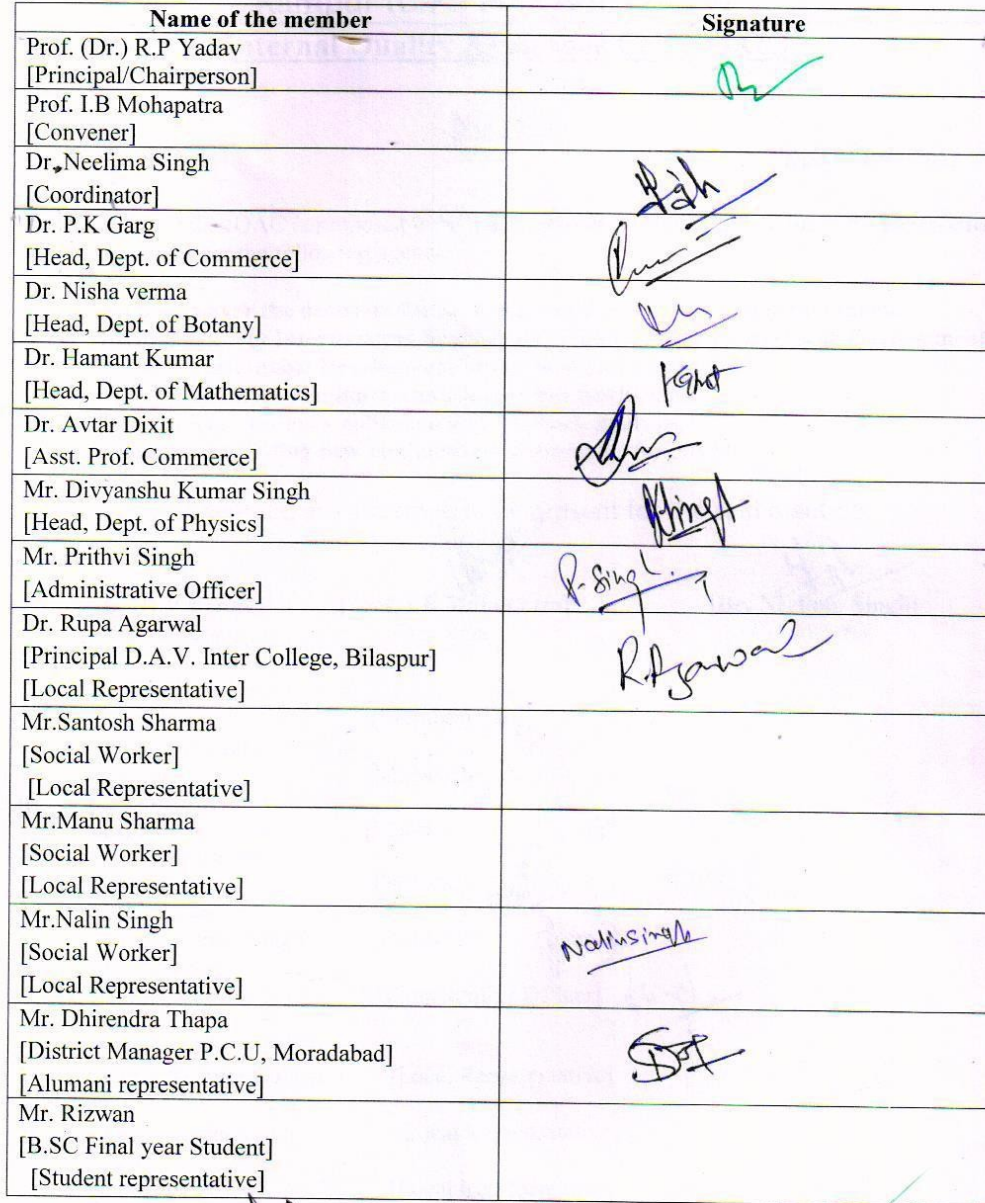 Name of the member Signature
Prof. (Dr.) R.P Yadav
[Principal/Chairperson]
Prof. I.B Mohapatra
[Convener]
Dr. Neelima Singh
[Coordinator]
Dr. P.K Garg
[Head, Dept. of Commerce]
Dr. Nisha verma
[Head, Dept. of Botany]
Dr. Hamant Kumar
[Head, Dept. of Mathematics]
Dr. Avtar Dixit
[Asst. Prof. Commerce]
Mr. Divyanshu Kumar Singh
[Head, Dept. of Physics]
Mr. Prithvi Singh
P. Singh
[Administrative Officer]
Dr. Rupa Agarwal
[Principal D.A.V. Inter College, Bilaspur]
R. Agarwal
[Local Representative]
Mr.Santosh Sharma
[Social Worker]
[Local Representative]
Mr.Manu Sharma
[Social Worker]
[Local Representative]
Mr.Nalin Singh
Nalinsingh
[Social Worker]
[Local Representative]
Mr. Dhirendra Thapa
[District Manager P.C.U, Moradabad]
[Alumani representative]
Mr. Rizwan
[B.SC Final year Student]
[Student representative]